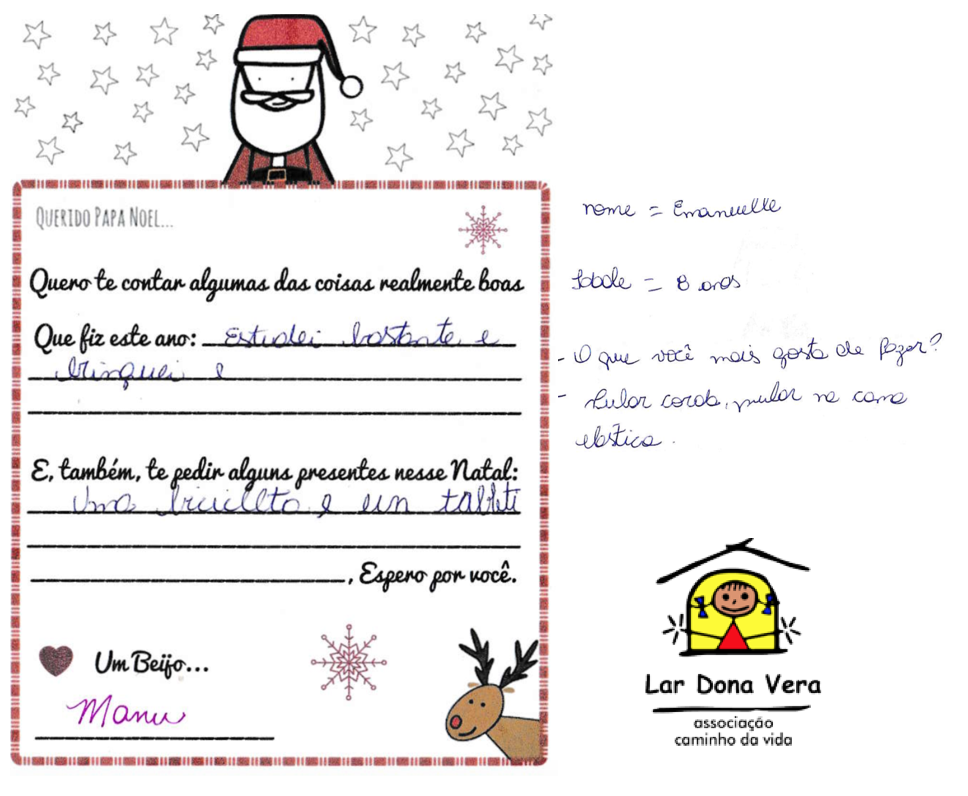 QUERIDO PAPA NOEL...
Quero te contar algumas das coisas realmente boas
Que fiz este ano: Estudei bastante e
brinquei e
E, também, te pedir alguns presentes nesse Natal:
Uma bicicleta e um tablete
, Espero por você.
Um Beijo...
Manu
nome = Emanuelle
Idade = 8 anos
- O que você mais gosta de fazer?
- Pular corda, pular na cama
elastica.
Lar Dona Vera
associação
caminho da vida